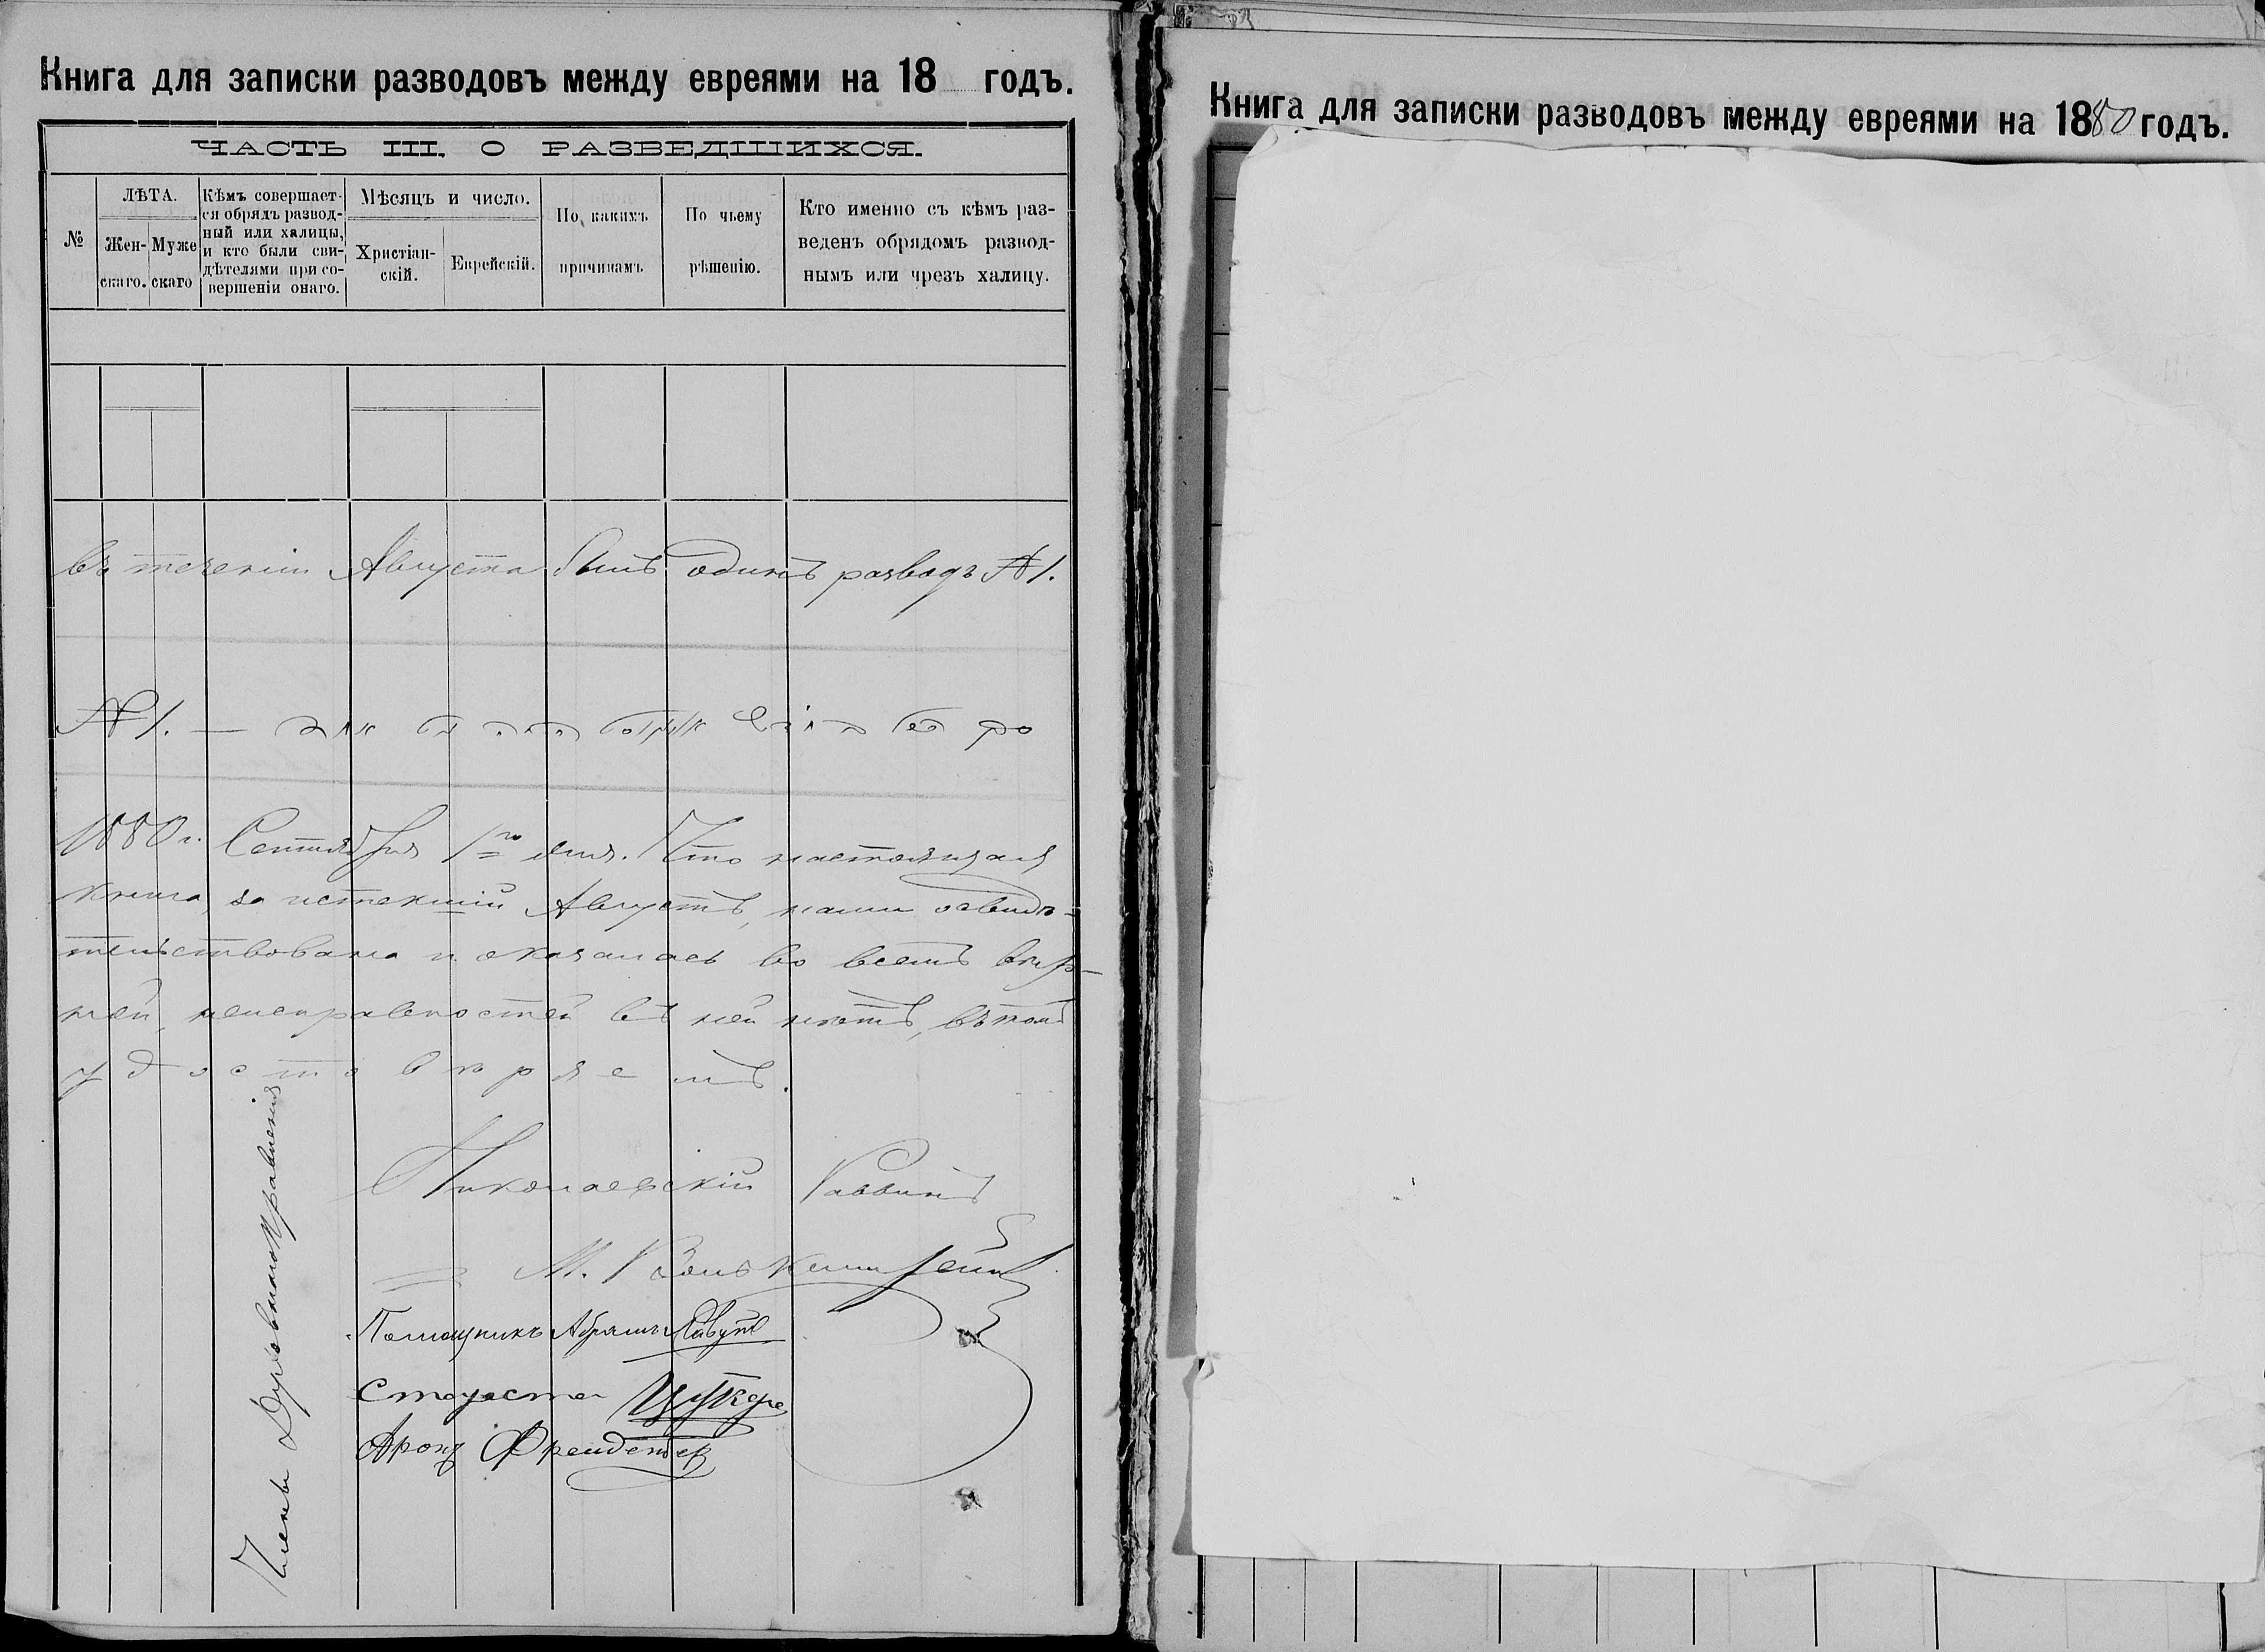 Книга для записки разводовъ между евреями на 18 годъ.
ЧАСТЬ III. О РАЗВЕДШИХСЯ.
№
ЛѢТА.
Жен-
скаго.
Муже
скаго
Кѣмъ совершает-
ся обрядъ развод-
ный или халицы,
и кто были сви-
дѣтелями при со-
вершеніи онаго.
Мѣсяцъ и число.
Христіан-
скій.
Еврейскій.
По какимъ
причинамъ
По чьему
рѣшенію.
Кто именно съ кѣмъ раз-
веденъ обрядомъ развод-
нымъ или чрезъ халицу.
въ теченіи Августа былъ одинъ разводъ №1.
№1. —
1880 г. Сентября 1го дня. Что настоящая
книга, за истекшій Августъ, нами освидѣ-
тельствована и оказалась во всемъ вѣр-
ной, неисправностей въ ней нѣтъ, въ томъ
удостовѣряемъ.
Николаевскій Раввинъ
М.
Помощникъ Абрамъ
Староста Цукеръ
Аронъ
Члены Духовнаго Правленія
Книга для записки разводовъ между евреями на 1880 годъ.